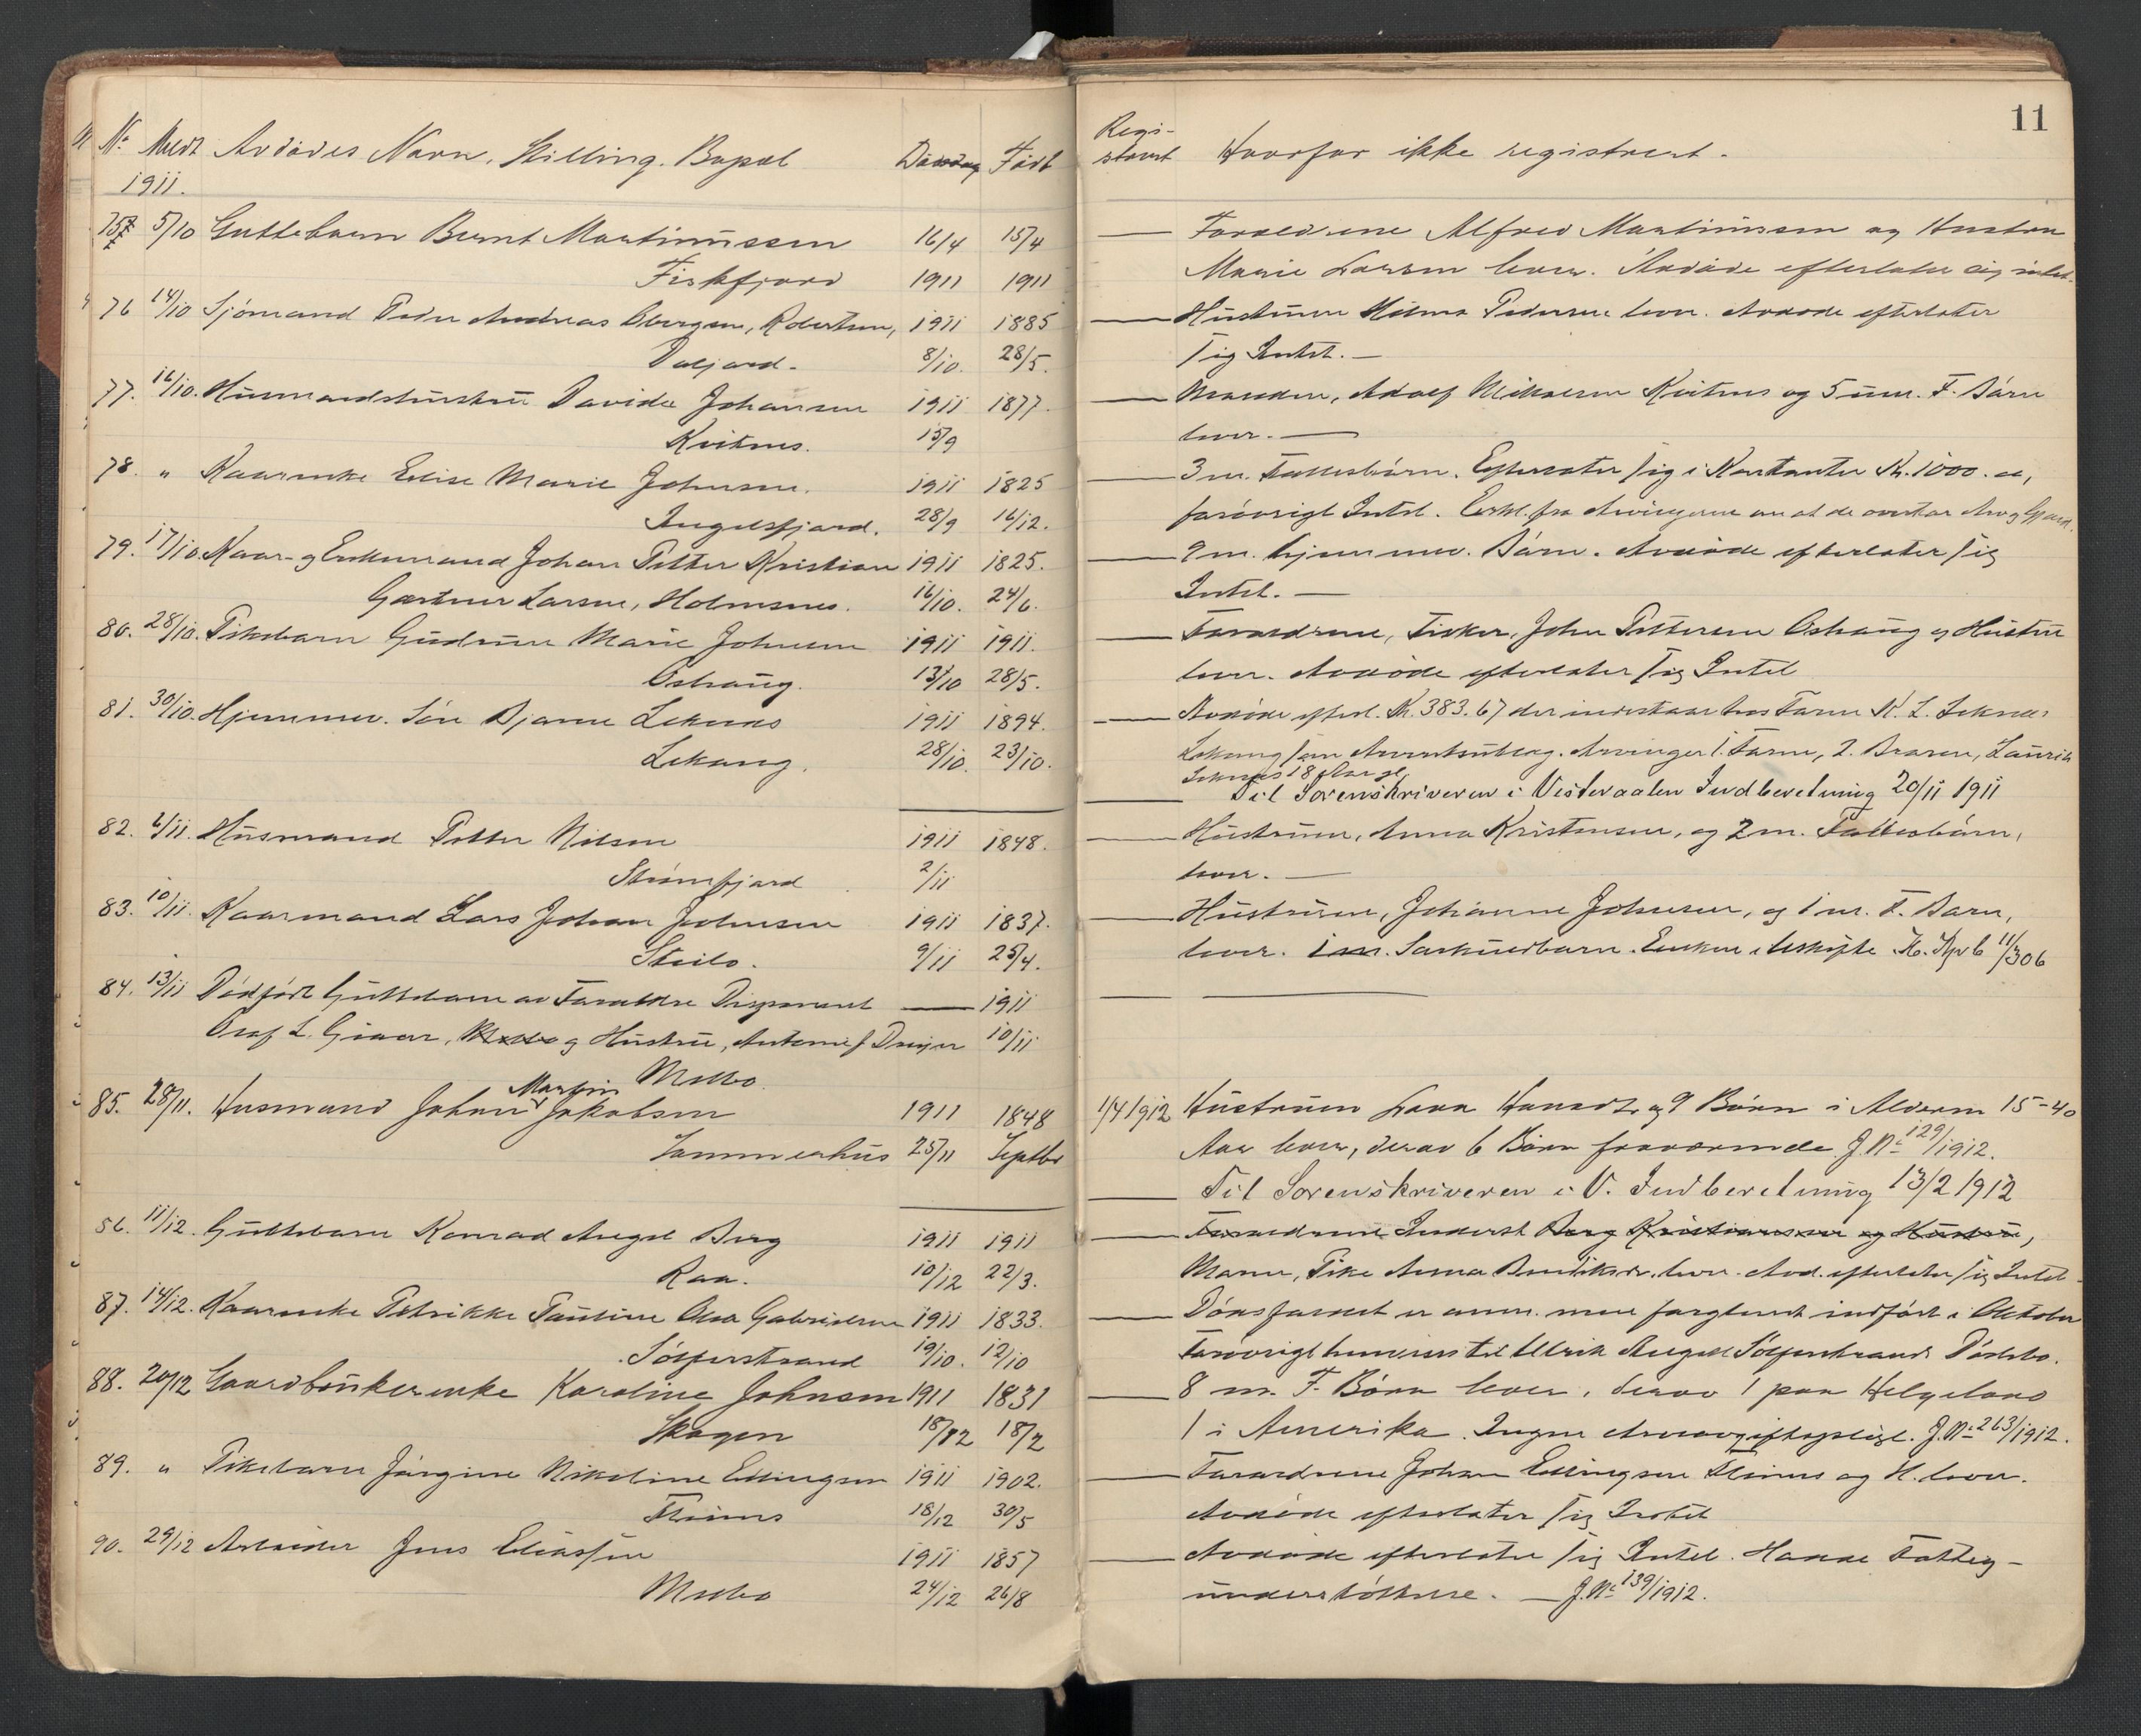 11
No Meldt Avdödes Navn, Stilling. Bopæl Dödsdag Födt
1911.
Regi-
strert Hvorfor ikke registrert.
75 5/10 Guttebarn Bernt Martinussen 16/4 15/4
Fiskfjord 1911 1911
76 14/10 Sjömand Peder Andreas Robertsen, 1911 1885
8/10. 28/5.
77. 16/10. Husmandshustru Davida Johansen 1911 1877.
Kvitnes. 15/9
78. " Kaarenke Elise Marie Johnsen. 1911 1825
Ingelsfjord. 28/9 16/12.
79. 17/10. Kaar- og Enkemand Johan Petter Kristian 1911 1825.
Gærtner Larsen, Holmsnes. 16/10. 24/6.
80. 28/10. Pikebarn Gudrun Marie Johnsen 1911 1911.
13/10 28/5.
81. 30/10. Hjemmev. Sön Bjarne Leknes 1911 1894.
Lekang. 28/10. 23/10.
82. 6/11. Husmand Petter Nilsen 1911 1848.
Strömfjord 2/11
83. 10/11. Kaarmand Lars Johan Johnsen 1911 1837.
Steilo. 9/11 25/4.
84. 13/11 Dödfödt Guttebarn av Foreldre 1911
Olaf L. og Hustru, Antonie J Dreyer 10/11
Melbo
85. 28/11. Husmand Johan Martin Jakobsen 1911 1848
Sommerhus 25/11 Septbr
86. 11/12. Guttebarn Konrad Angel Berg 1911 1911
Raa. 10/12 22/3.
87. 14/12. Kaarenke Petrikke Pauline Gabrielsen 1911 1833.
Sölferstrand 19/10. 12/10
88. 20/12 Gaardbrukerenke Karoline Johnsen 1911 1831
Skagen 18/12 18/2
89. " Pikebarn Jörgine Nikoline Ellingsen 1911 1902.
18/12 30/5
90. 29/12 Arbeider Jens Eliassen 1911 1857
Melbo 24/12 26/8
Foreldrene Alfred Martinussen og Hustru
Marie Larsen lever. Avdöde efterlater sig intet.
Hustruen Hilma Pedersen lever. Avdöde efterlater
sig Intet.
Manden, Adolf Mikalsen Kvitnes og 5 um. F. Börn
lever.
3 m. Fællesbörn. Efterlater sig i Kontanter Kr. 1000.00,
forövrigt Intet. Erkl. fra Arvingerne om at de overtar Arv og Gjæld.
9 m. hjemmev. Börn. Avdöde efterlater sig
Intet.
Foreldrene, Fisker, John Pettersen og Hustru
lever. Avdöde efterlater sig Intet
Avdöde efterl. Kr. 383.67 der indestaar hos Faren K. L. Leknes
Lekang som Arventsutlæg. Arvinger 1. Faren, 2. Broren, Laurits
Leknes 18 Aar gl.
Til Sorenskriveren i Vesteraalen Indberetning 20/11 1911
Hustruen, Anna Kristensen, og 2 m. Fællesbörn,
lever.
Hustruen, Johanne Johnsen, og 1 m. F. Barn,
lever. 1 m. Særkuldbarn. Enken i Uskifte 11/306
1/4 1912 Hustruen Lava Hansdtr og 9 Börn i Alderen 15-40
Aar lever, derav 6 Börn fraværende. J.No 129/1912.
Til Sorenskriveren i V. Indberetning 13/2 1912
Foreldrene Inderst Berg Kristiansen og Hustru,
Moren, Pike Anna lever. Avd. efterlater sig Intet
Dödsfaldet er anm. men forglemt indfört i Oktober
Forövrigt henvises til Ulrik Angell Sölferstrands Dödsbo.
8 m. F. Börn lever, derav 1 paa Helgeland
1 i Amerika. Ingen Arveavgiftspligt. J.No 263/1912.
Foreldrene Johan Ellingsen og H. lever.
Avdöde efterlater sig Intet
Avdöde efterlater sig Intet. Hadde Fattig-
understöttelse. J.No 139/1912.